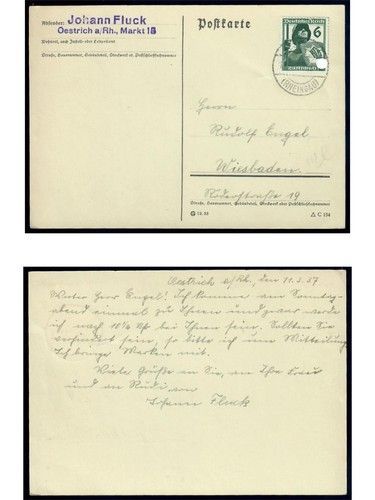 Absender:
Johann Fluck
Oestrich a/Rh., Markt 18
Wohnort, auch Zustell- oder Leitpostamt
Straße, Hausnummer, Gebäudeteil, Stockwerk od. Postschließfachnummer
Postkarte
Deutsches Reich
6
(RHEINGAU)
Herrn
Rudolf Engel
Wiesbaden
Röderstraße 19
Straße, Hausnummer, Gebäudeteil, Stockwerk oder Postschließfachnummer
C 154
Oestrich a/Rh., den 11.3.37
Werter Herr Engel! Ich komme am Sonntag-
abend einmal zu Ihnen und zwar werde
ich nach 10¼ Uhr bei Ihnen sein. Sollten Sie
verhindert sein, so bitte ich um Mitteilung.
Ich bringe Marken mit.
Viele Grüße an Sie, an Ihre Frau
und an Rudi, von
Johann Fluck